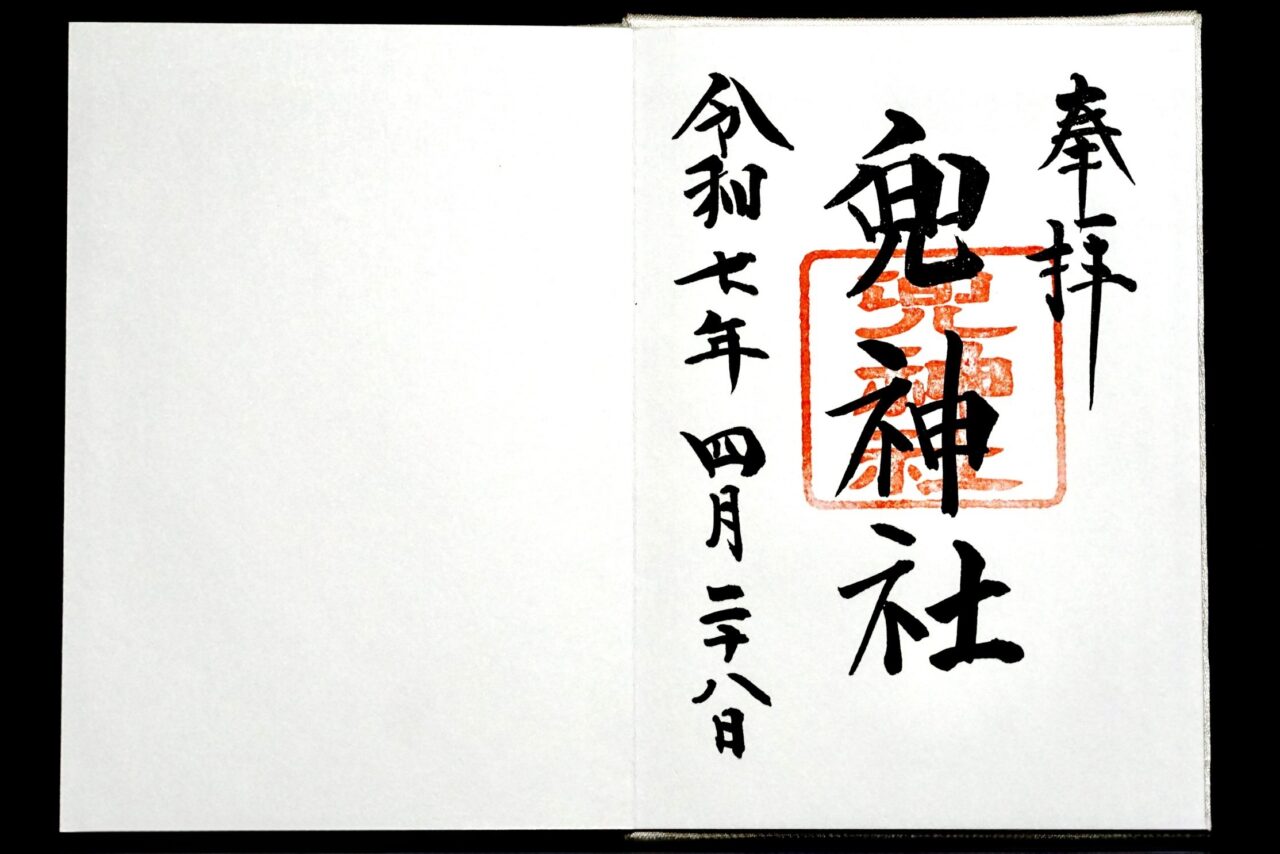 奉拝
兜神社
兜神社
令和七年 四月二十八日